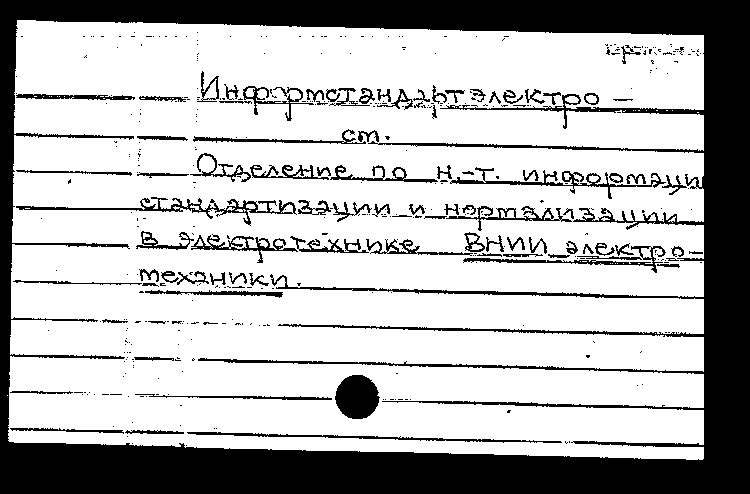 Информстандартэлектро –
ст.
Отделение по н.-т. информации
стандартизации и нормализации
в электротехнике ВНИИ электро-
механики.